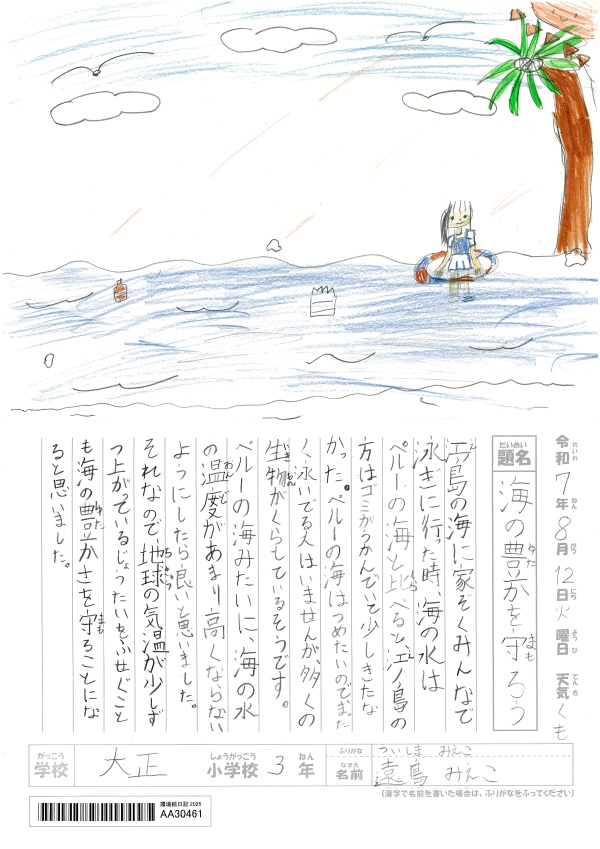 令和7年8月12日火曜日 天気くも
れいわ ねん がつ にち ようび てんき
題名 海の豊かを守ろう
だいめい ゆた まも
江ノ島の海に家ぞくみんなで
泳ぎに行った時、海の水は
ペルーの海と比べると、江ノ島の
方はゴミがうかんでいて少しきたな
かった。ペルーの海はつめたいのでまった
く泳いでる人はいませんが、多くの
生物がくらしているそうです。
ペルーの海みたいに、海の水
の温度があまり高くならない
ようにしたら良いと思いました。
それなので、地球の気温が少しず
つ上がっているじょうたいをふせぐこと
も海の豊かさを守ることにな
ると思いました。
がっこう しょうがっこう ねん ふりがな ついしま みえこ
学校 大正 小学校 3年 なまえ 名前 遠島 みえこ
(漢字で名前を書いた場合は、ふりがなをふってください)
環境絵日記 2025
AA30461